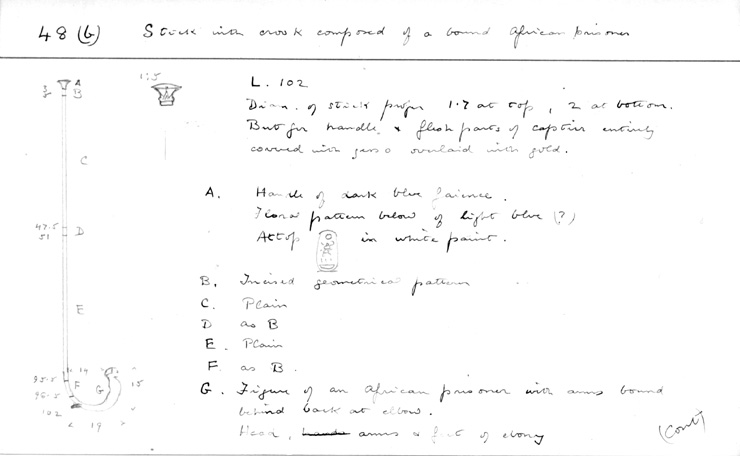 48 (b) Stick with crook composed of a bound African prisoner
1:5
L. 102
Diam. of stick proper 1.7 at top, 2 at bottom.
But for handle & flesh parts of captive entirely
covered with gesso overlaid with gold.
A
B
C
D
E
F
G
3
47.5
51
14
95.5
96.5
102
15
19
A. Handle of dark blue faience.
Floral pattern below of light blue (?)
At top in white paint.
B. Incised geometrical pattern
C. Plain
D as B
E. Plain
F. as B.
G. Figure of an African prisoner with arms bound
behind back at elbow.
Head, hands arms & feet of ebony
(Cont)